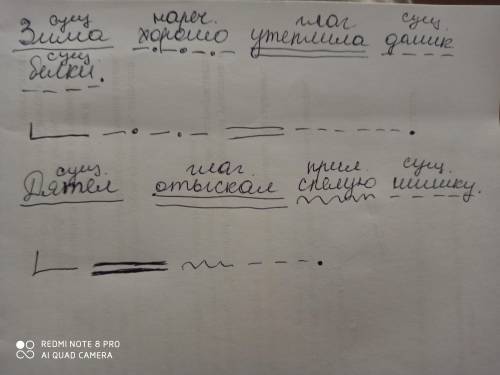 сущ. нареч. глаг. сущ.
Зима хорошо утеплила домик
сущ.
белки.
сущ. глаг. прил. сущ.
Дятел отыскал спелую шишку.
REDMI NOTE 8 PRO
AI QUAD CAMERA